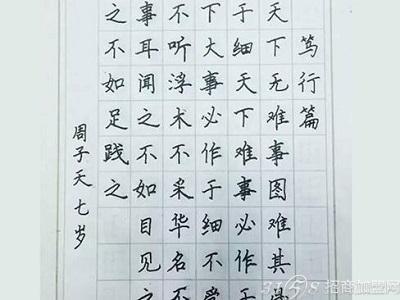 笃行篇
天下无难事图难其
于细天下难事必作于
下大事必作于细不
不听浮术不采华名不
事耳闻之不如目见之
之不如足践之
周子天七岁
3158招商加盟网